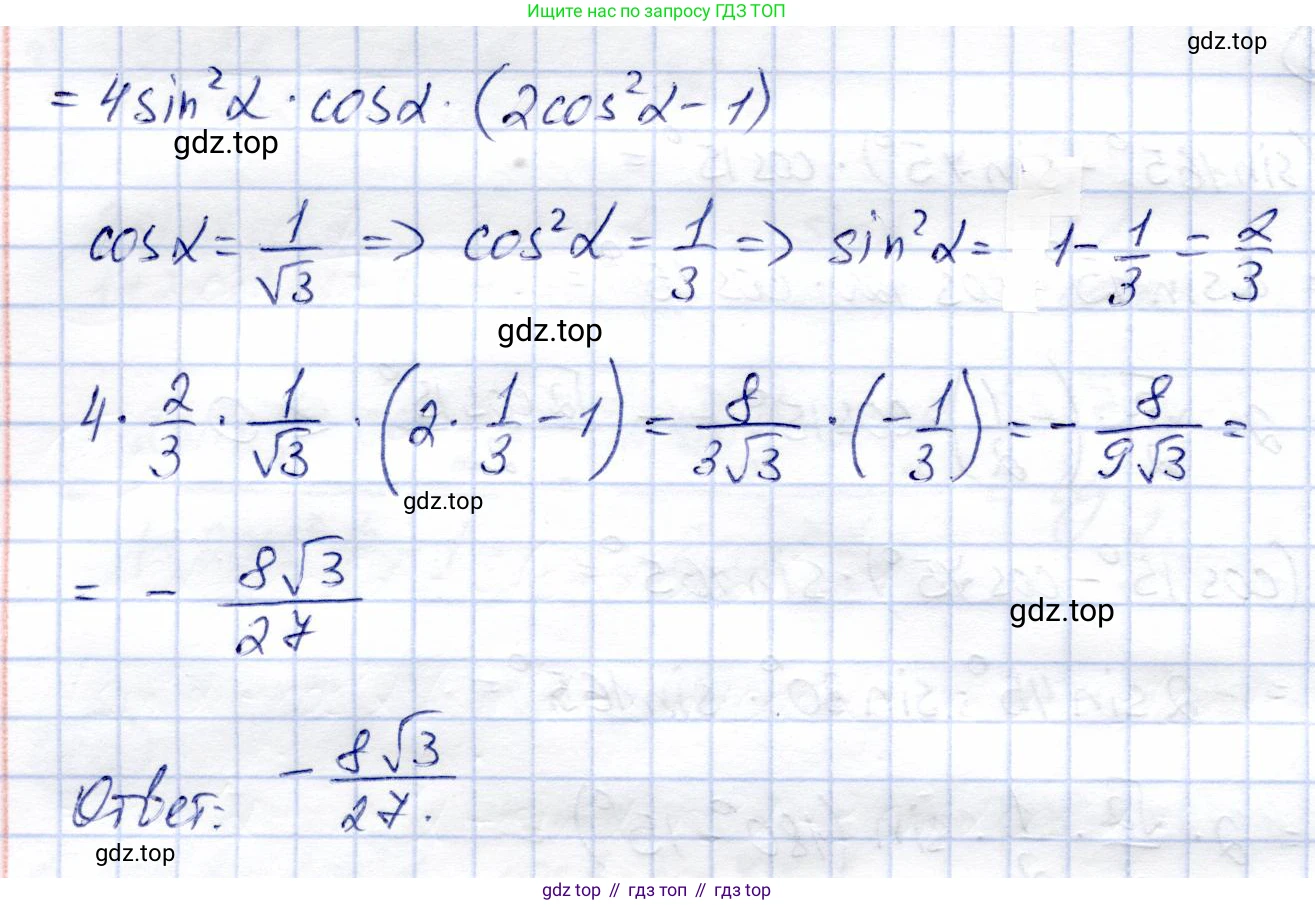 Ищите нас по запросу ГДЗ ТОП
gdz.top
= 4sin²α · cosα · (2cos²α - 1)
gdz.top
cosα = 1/√3 => cos²α = 1/3 => sin²α = 1 - 1/3 = 2/3
gdz.top
4 · 2/3 · 1/√3 · (2 · 1/3 - 1) = 8/(3√3) · (-1/3) = - 8/(9√3) =
gdz.top
= - 8√3/27
gdz.top
Ответ: - 8√3/27.
gdz.top
gdz top // гдз топ // gdz top